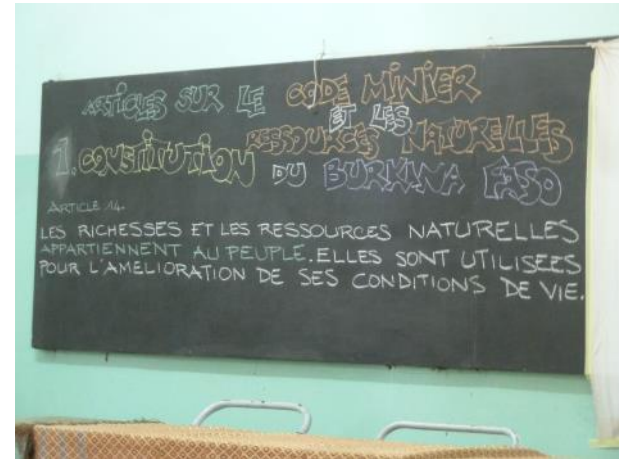 ARTICLES SUR LE CODE MINIER
ET LES
RESSOURCES NATURELLES
1. CONSTITUTION DU BURKINA FASO
ARTICLE 14.
LES RICHESSES ET LES RESSOURCES NATURELLES
APPARTIENNENT AU PEUPLE. ELLES SONT UTILISEES
POUR L'AMELIORATION DE SES CONDITIONS DE VIE.